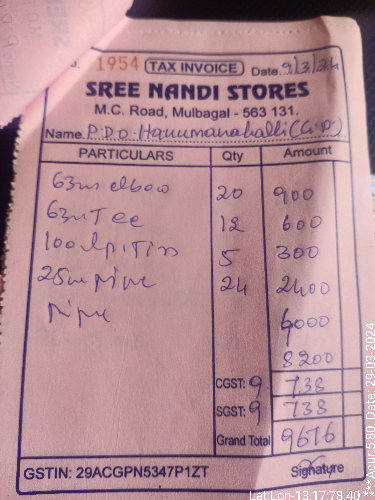 1954 TAX INVOICE Date 9/3/24
SREE NANDI STORES
M.C. Road, Mulbagal - 563 131.
Name P.D.O. Hanumanahalli (G.P.)
PARTICULARS Qty Amount
63m elbow 20 900
63m Tee 12 600
5 300
25m pipe 24 2400
pipe 4000
8200
CGST: 9 738
SGST: 9 738
Grand Total 9676
GSTIN: 29ACGPN5347P1ZT Signature
Lat Lon-13.17:78.40 ***Acur:5.80 Date: 29-03-2024